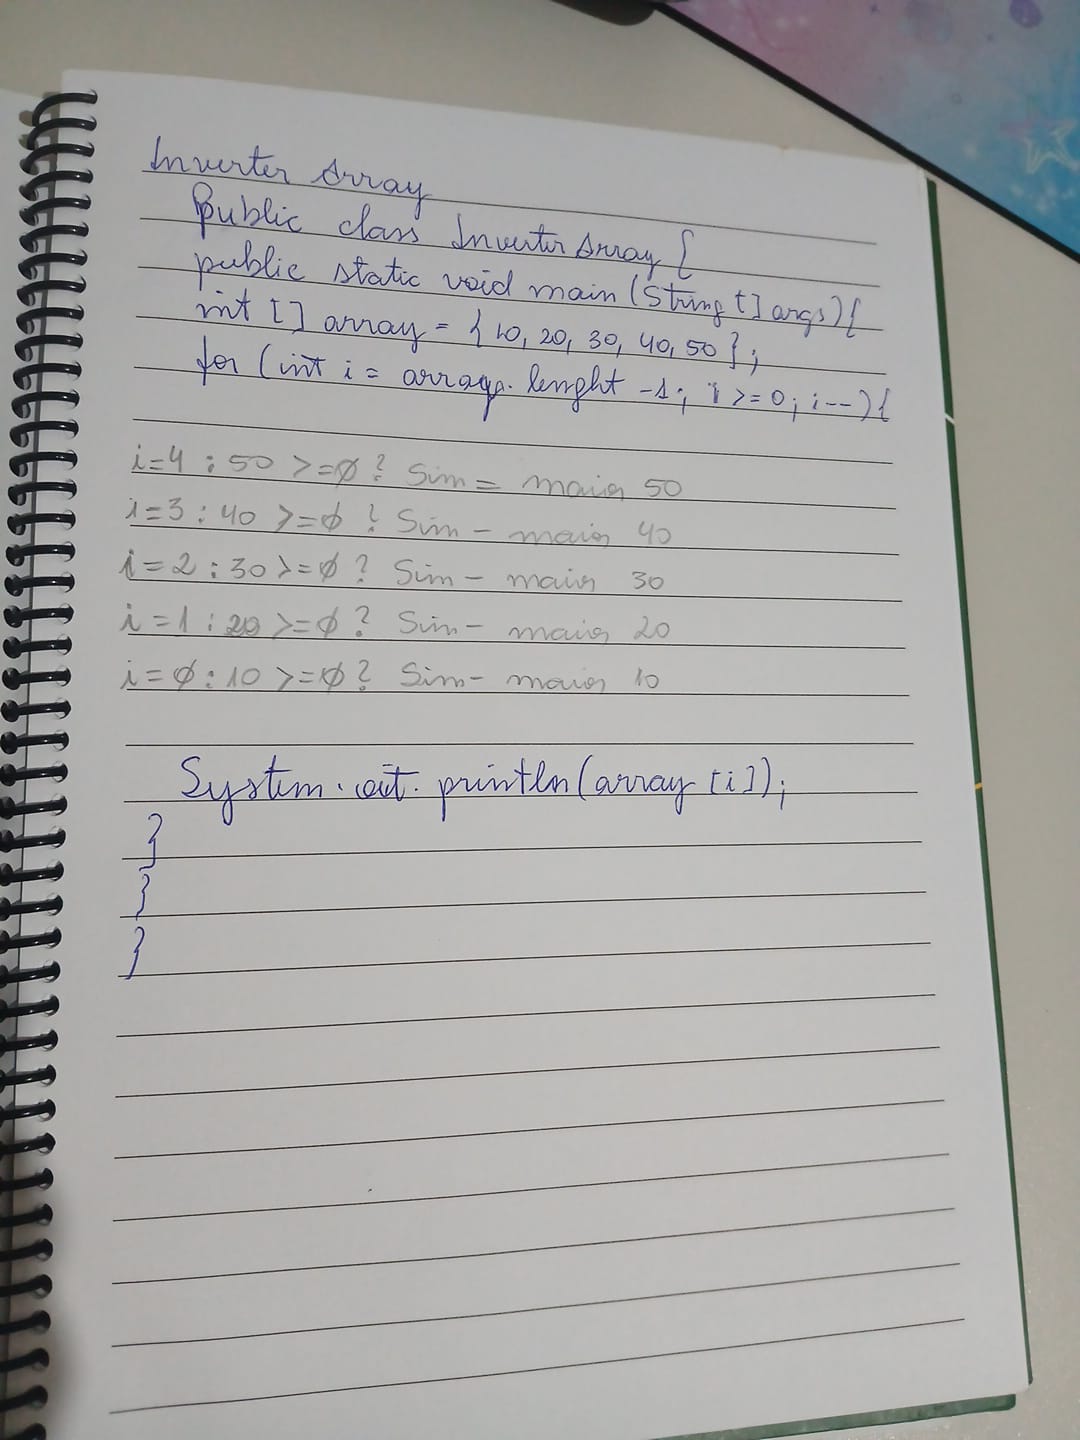 Inverter Array
Public class InverterArray {
public static void main (String [] args) {
int [] array = { 10, 20, 30, 40, 50 };
for (int i = array. lenght -1; i >= 0; i--) {
i=4 : 50 >=0? Sim = maior 50
i=3 : 40 >=0 ? Sim - maior 40
i=2 : 30 >=0 ? Sim - maior 30
i=1 : 20 >=0 ? Sim - maior 20
i=0 : 10 >=0? Sim - maior 10
System.out.println(array [i]);
}
}
}